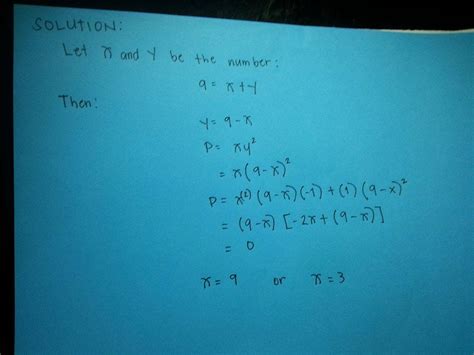 SOLUTION:
Let x and y be the number:
9 = x+y
Then:
y = 9-x
P = xy²
= x(9-x)²
P = x(2)(9-x)(-1)+(1)(9-x)²
= (9-x)[-2x+(9-x)]
= 0
x=9 or x=3